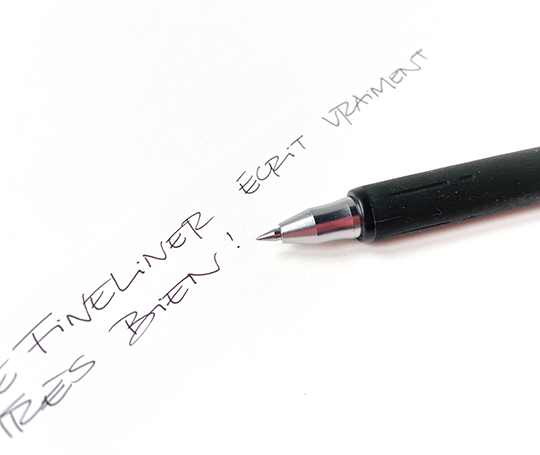 FINELINER ECRIT VRAIMENT
TRÈS BIEN!